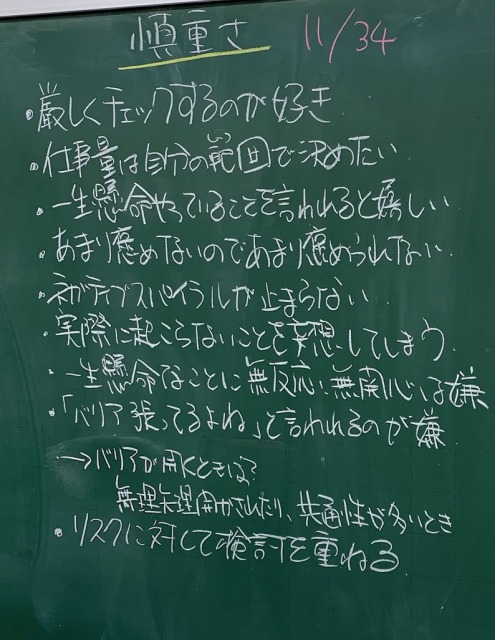 慎重さ 11/34
・厳しくチェックするのが好き
・仕事量は自分の範囲で決めたい
・一生懸命やっていることを言われると嬉しい
・あまり褒めないのであまり褒められない
・ネガティブスパイラルが止まらない
・実際に起こらないことを予想してしまう
・一生懸命なことに無反応、無関心は嫌
・「バリア張ってるよね」と言われるのが嫌
→バリアが開くときは?
無理矢理開かせたり、共通性が多いとき
・リスクに対して検討を重ねる